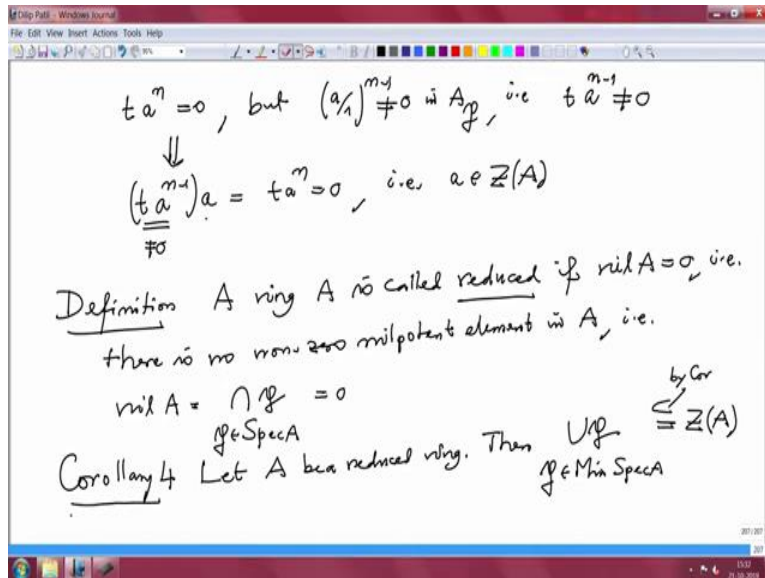 Dilip Patil - Windows Journal
File Edit View Insert Actions Tools Help
t a^n = 0, but (a/1)^{n-1} ≠ 0 in A_𝔭, i.e. t a^{n-1} ≠ 0
⇓
(t a^{n-1}) a = t a^n = 0, i.e., a ∈ Z(A)
≠0
Definition A ring A is called reduced if nil A = 0, i.e.
there is no non-zero nilpotent element in A, i.e.
nil A = ∩ 𝔭 = 0
𝔭 ∈ Spec A
by Cor
Corollary 4 Let A be a reduced ring. Then ∪ 𝔭 ⊆= Z(A)
𝔭 ∈ Min Spec A
207/207
207
15:32
21-10-2019